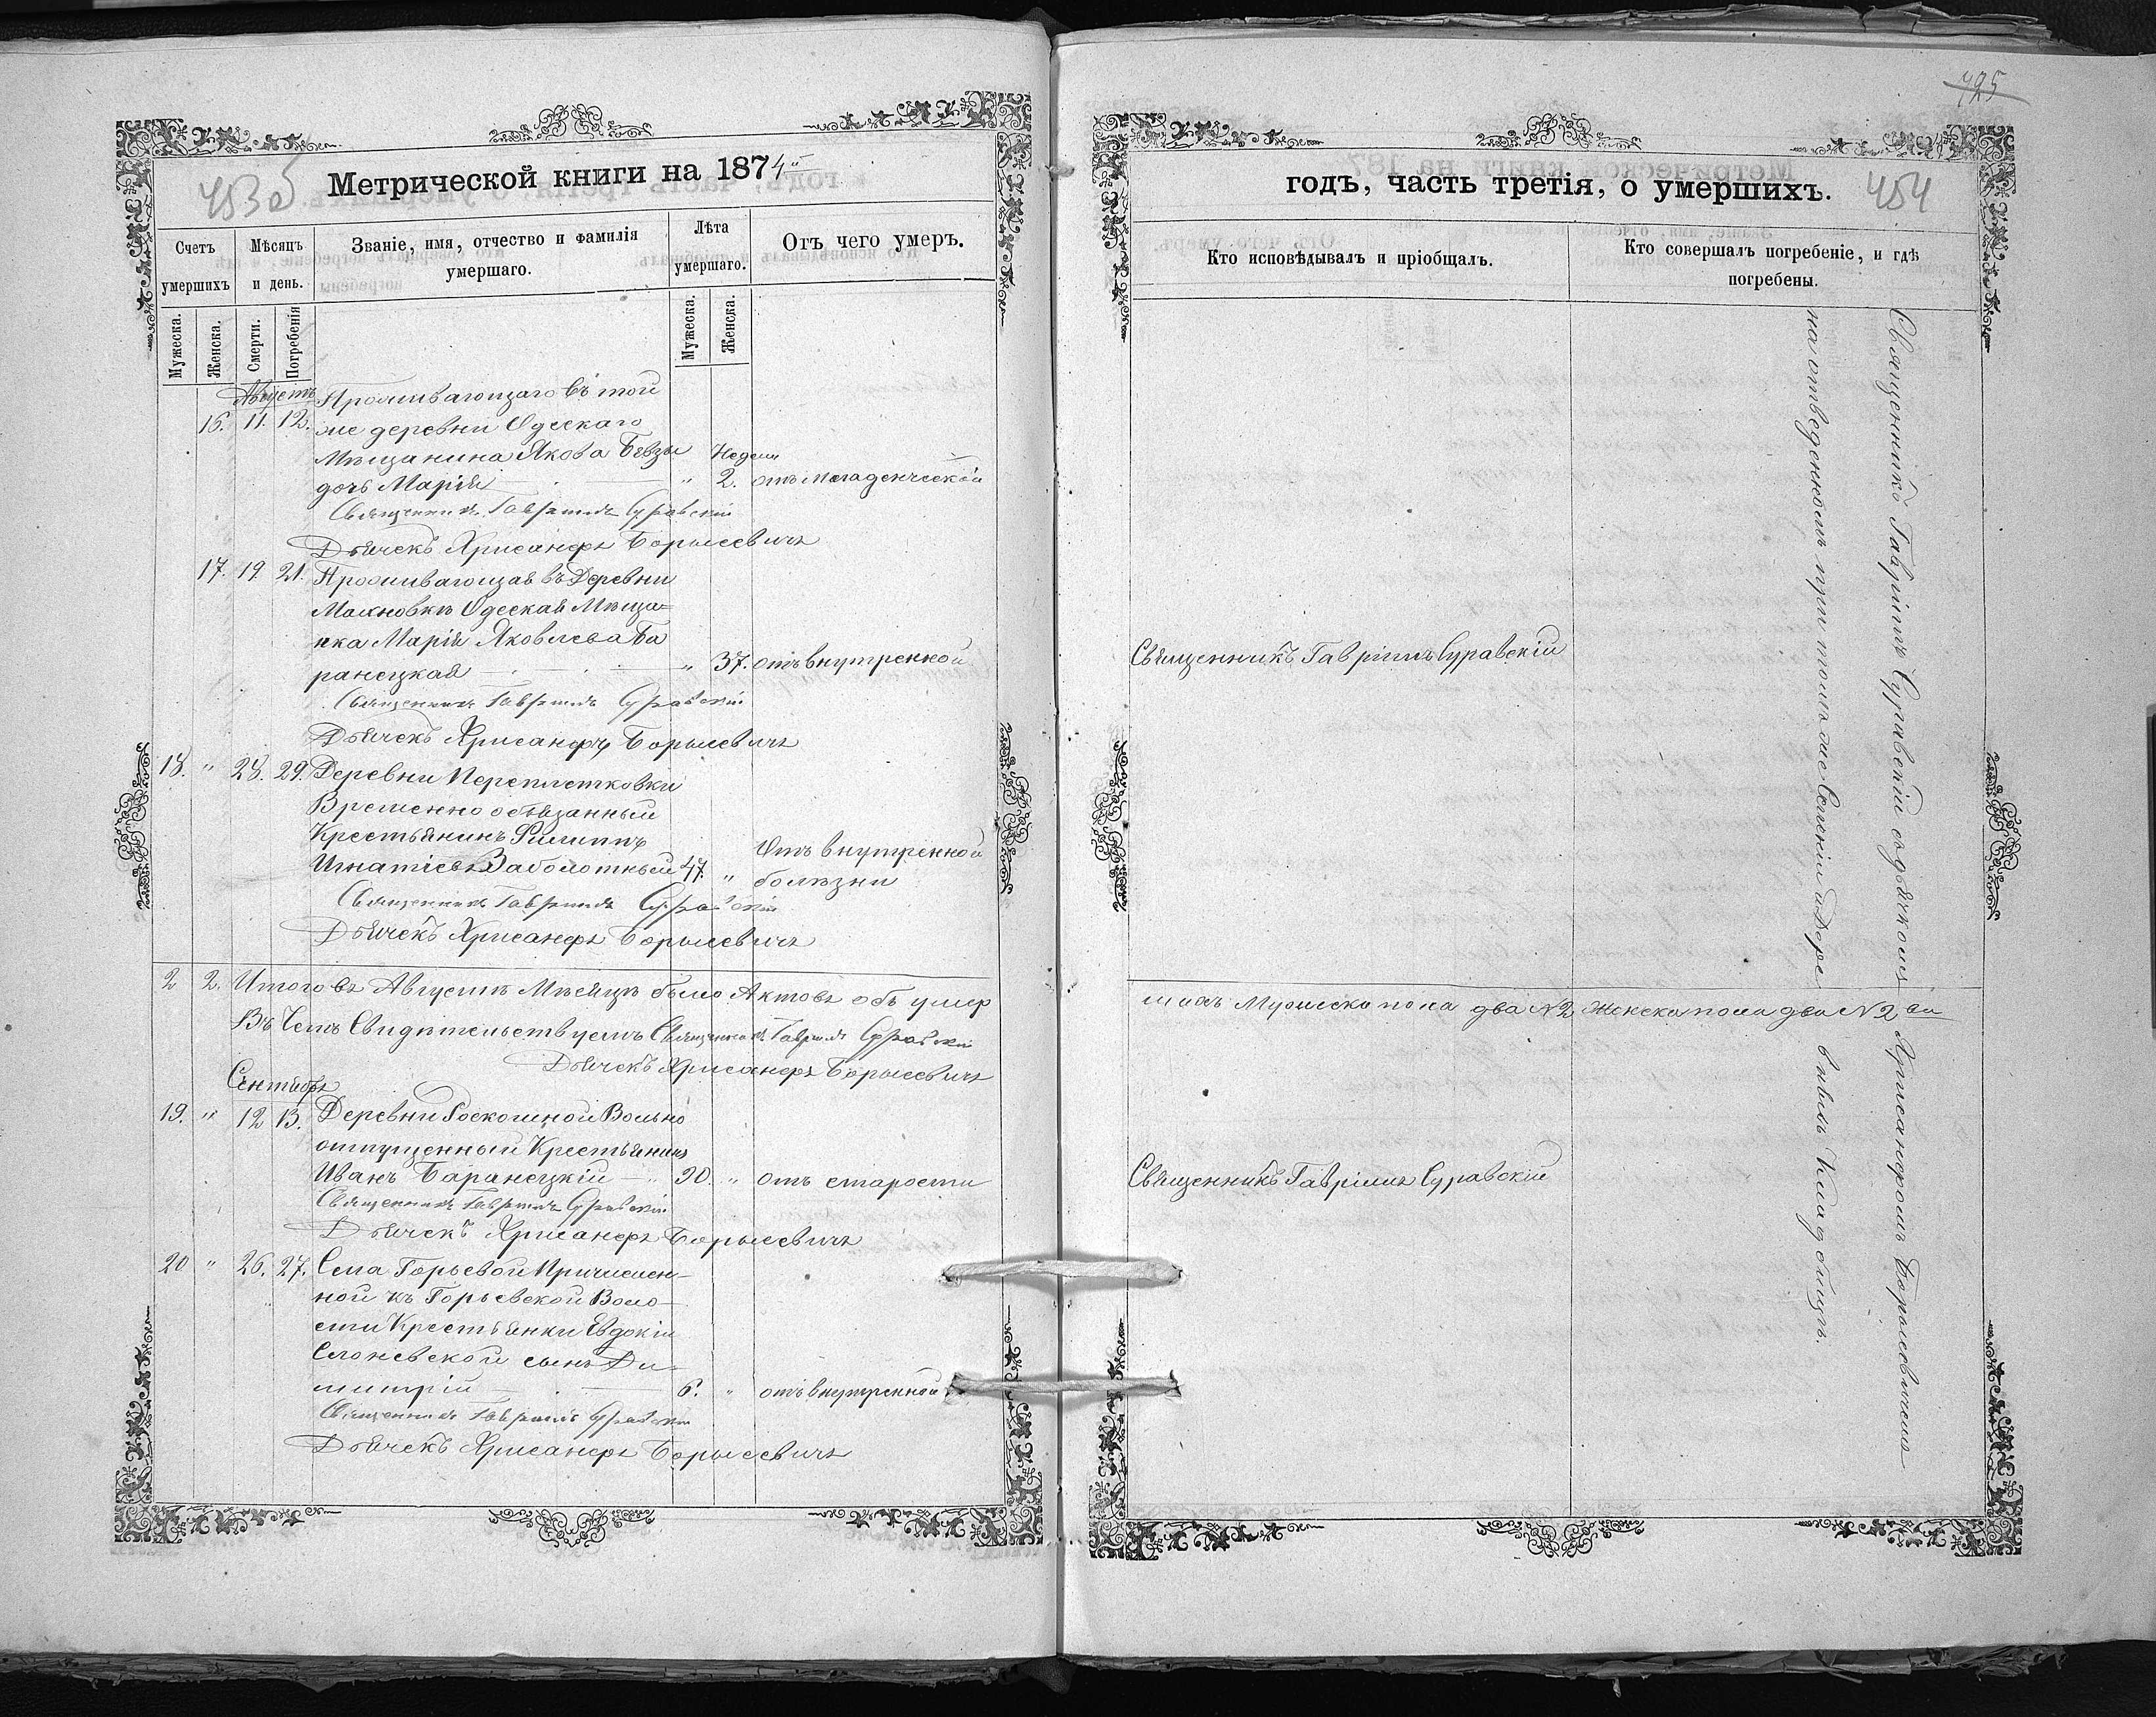 453об
Метрической книги на 1874й
Счетъ умершихъ
Мѣсяцъ и день.
Званіе, имя, отчество и фамилія умершаго.
Лѣта умершаго.
Отъ чего умеръ.
Мужеска.
Женска.
Смерти.
Погребенія
Мужеска.
Женска.
Августъ
Проживающаго въ той
16. 11. 12. же деревни Одесскаго
Мѣщанина Якова Бевзы Недели
дочь Марія " 2. отъ младенческой
Священникъ Гавріилъ Суравскій
Дьячекъ Хрисанфъ Борысевичъ
17. 19 21. Проживающая въ Деревни
Махновкѣ Одеская Мѣща=
нка Марія Яковлева Ба
ранецкая " 37. отъ внутренной
Священникъ Гавріилъ Суравскій
Дьячекъ Хрисанфъ Борысевичъ
18. " 28. 29. Деревни Переплетковки
Временно обязанный
Крестьянинъ Филиппъ Отъ внутренной
Игнатіевъ Заболотный 47. " болѣзни
Священникъ Гавріилъ Суравскій
Дьячекъ Хрисанфъ Борысевичъ
2 2. Итого въ Августѣ Мѣсяцѣ было Актовъ объ умер
Въ Чемъ Свидѣтельствуемъ Священникъ Гавріилъ Суравскій
Дьячекъ Хрисанфъ Борысевичъ
Сентябрь
19. " 12 13. Деревни Роскошной Вольно
отпущенный Крестьянинъ
Иванъ Баранецкій 90. " отъ старости
Священникъ Гавріилъ Суравскій
Дьячекъ Хрисанфъ Борысевичъ
20 " 26. 27. Села Горьевой Причислен-
ной къ Горьевской Воло-
сти Крестьянки Евдокіи
Слоневской сынъ Ди-
митрій 6. " отъ внутренной
Священникъ Гавріилъ Суравскій
Дьячекъ Хрисанфъ Борысевичъ
425
годъ, часть третія, о умершихъ. 454
Кто исповѣдывалъ и пріобщалъ.
Кто совершалъ погребеніе, и гдѣ погребены.
Священникъ Гавріилъ Суравскій
шихъ Мужеска пола два №2 Женска пола два №2
Священникъ Гавріилъ Суравскій
Священникъ Гавріилъ Суравскій съ дьячкомъ Хрисанфомъ Борысевичемъ
на отведенномъ при томъ же Селеніи и Дере вныхъ Кладбищѣ.